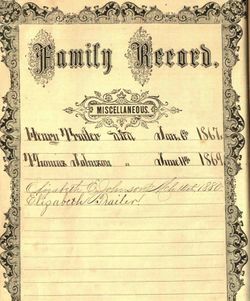 Family Record.
MISCELLANEOUS.
Henry Trailer died Jan. 1867.
Thomas Johnson " June 1869
Elizabeth C Johnson Oct 1880
Elizabeth Trailer